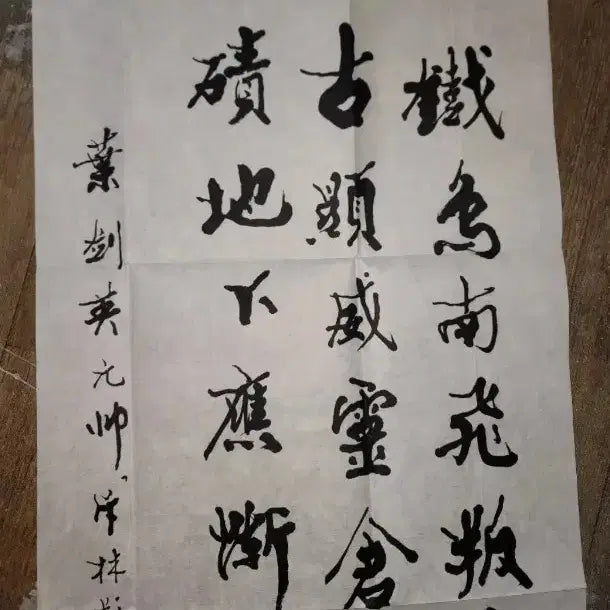 鐵鳥南飛叛
古顯威靈倉
磧地下應慚
葉劍英元帥林